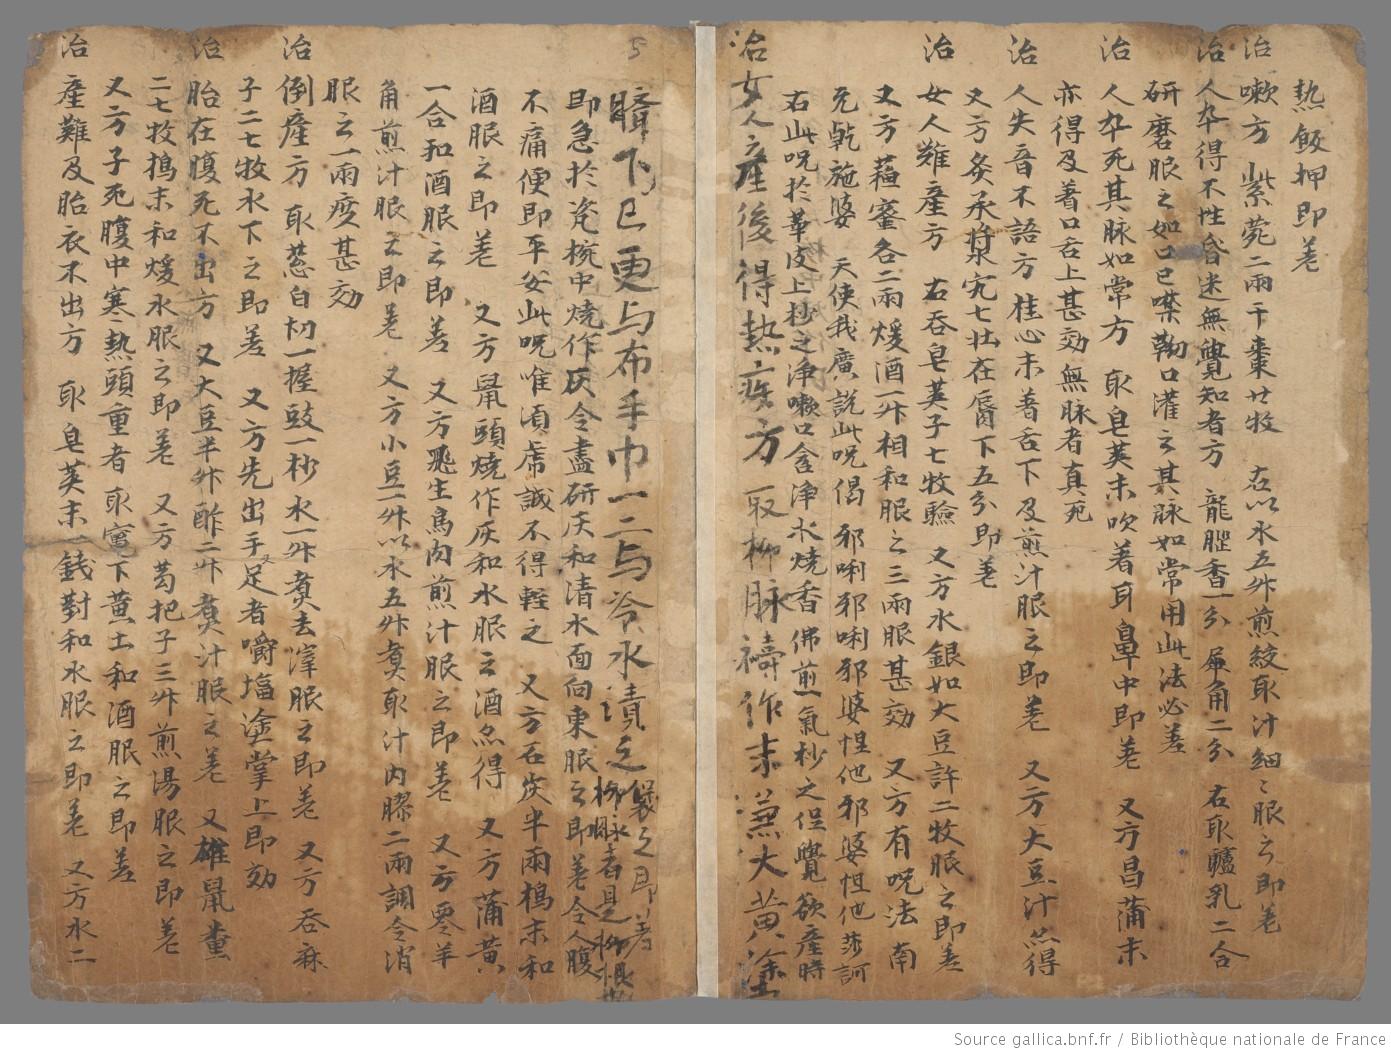 熱飯押即差
治嗽方 紫菀二兩干棗廿牧 右以水五升煎絞取汁細〻服之即差
治人卒得不性昏迷無覺知者方 龍腦香一分 犀角二分 右取驢乳二合
研磨服之如口已噤㔢口灌之其脉如常用此法必差
治人卒死其脉如常方 取皂莢末吹著耳鼻中即差 又方昌蒲末
亦得及著口舌上甚効無脉者真死
治人失音不語方 桂心末著舌下及煎汁服之即差 又方大豆汁亦得
又方灸承漿穴七壯在脣下五分即差
治女人難産方 右吞皂莢子七牧驗 又方水銀如大豆許二牧服之即差
又方蘓蜜各二兩煖酒一升相和服之三兩服甚効 又方有呪法南
无乾施婆 天使我廣説此呪偈 邪唎邪唎邪婆怛他邪婆怛他莎訶
右此呪於華皮上抄之浄嗽口含浄水燒香佛前一氣抄之但覺欲産時
治女人産後得熱疾方 取柳脉擣作末兼大黄塗
臍下已更与布手巾一二与冷水漬之 儭之即差
柳脉者是柳根也
即急於瓷椀中燒作灰令盡研灰和清水面向東服之即差令人腹
不痛便即平安此呪唯湏虔誠不得輕之 又方石灰半兩搗末和
酒服之即差 又方鼠頭燒作灰和水服之酒亦得 又方蒲黄
一合和酒服之即差 又方飛生鳥肉煎汁服之即差 又方零羊
角煎汁服之即差 又方小豆一升以水五升煮取汁内膠二兩調令消
服之一兩度甚効
治倒産方 取葱白切一握豉一抄水一升煮去滓服之即差 又方吞麻
子二七牧水下之即差 又方先出手足者嚼塩塗掌上即効
治胎在腹死不出方 又大豆半升酢二升煮汁服之差 又雄鼠糞
二七牧搗末和煖水服之即差 又方葛把子三升煎湯服之即差
又方子死腹中寒熱頭重者取竈下黄土和酒服之即差
治産難及胎衣不出方 取皂莢末一錢對和水服之即差 又方水二
5
Source gallica.bnf.fr / Bibliothèque nationale de France